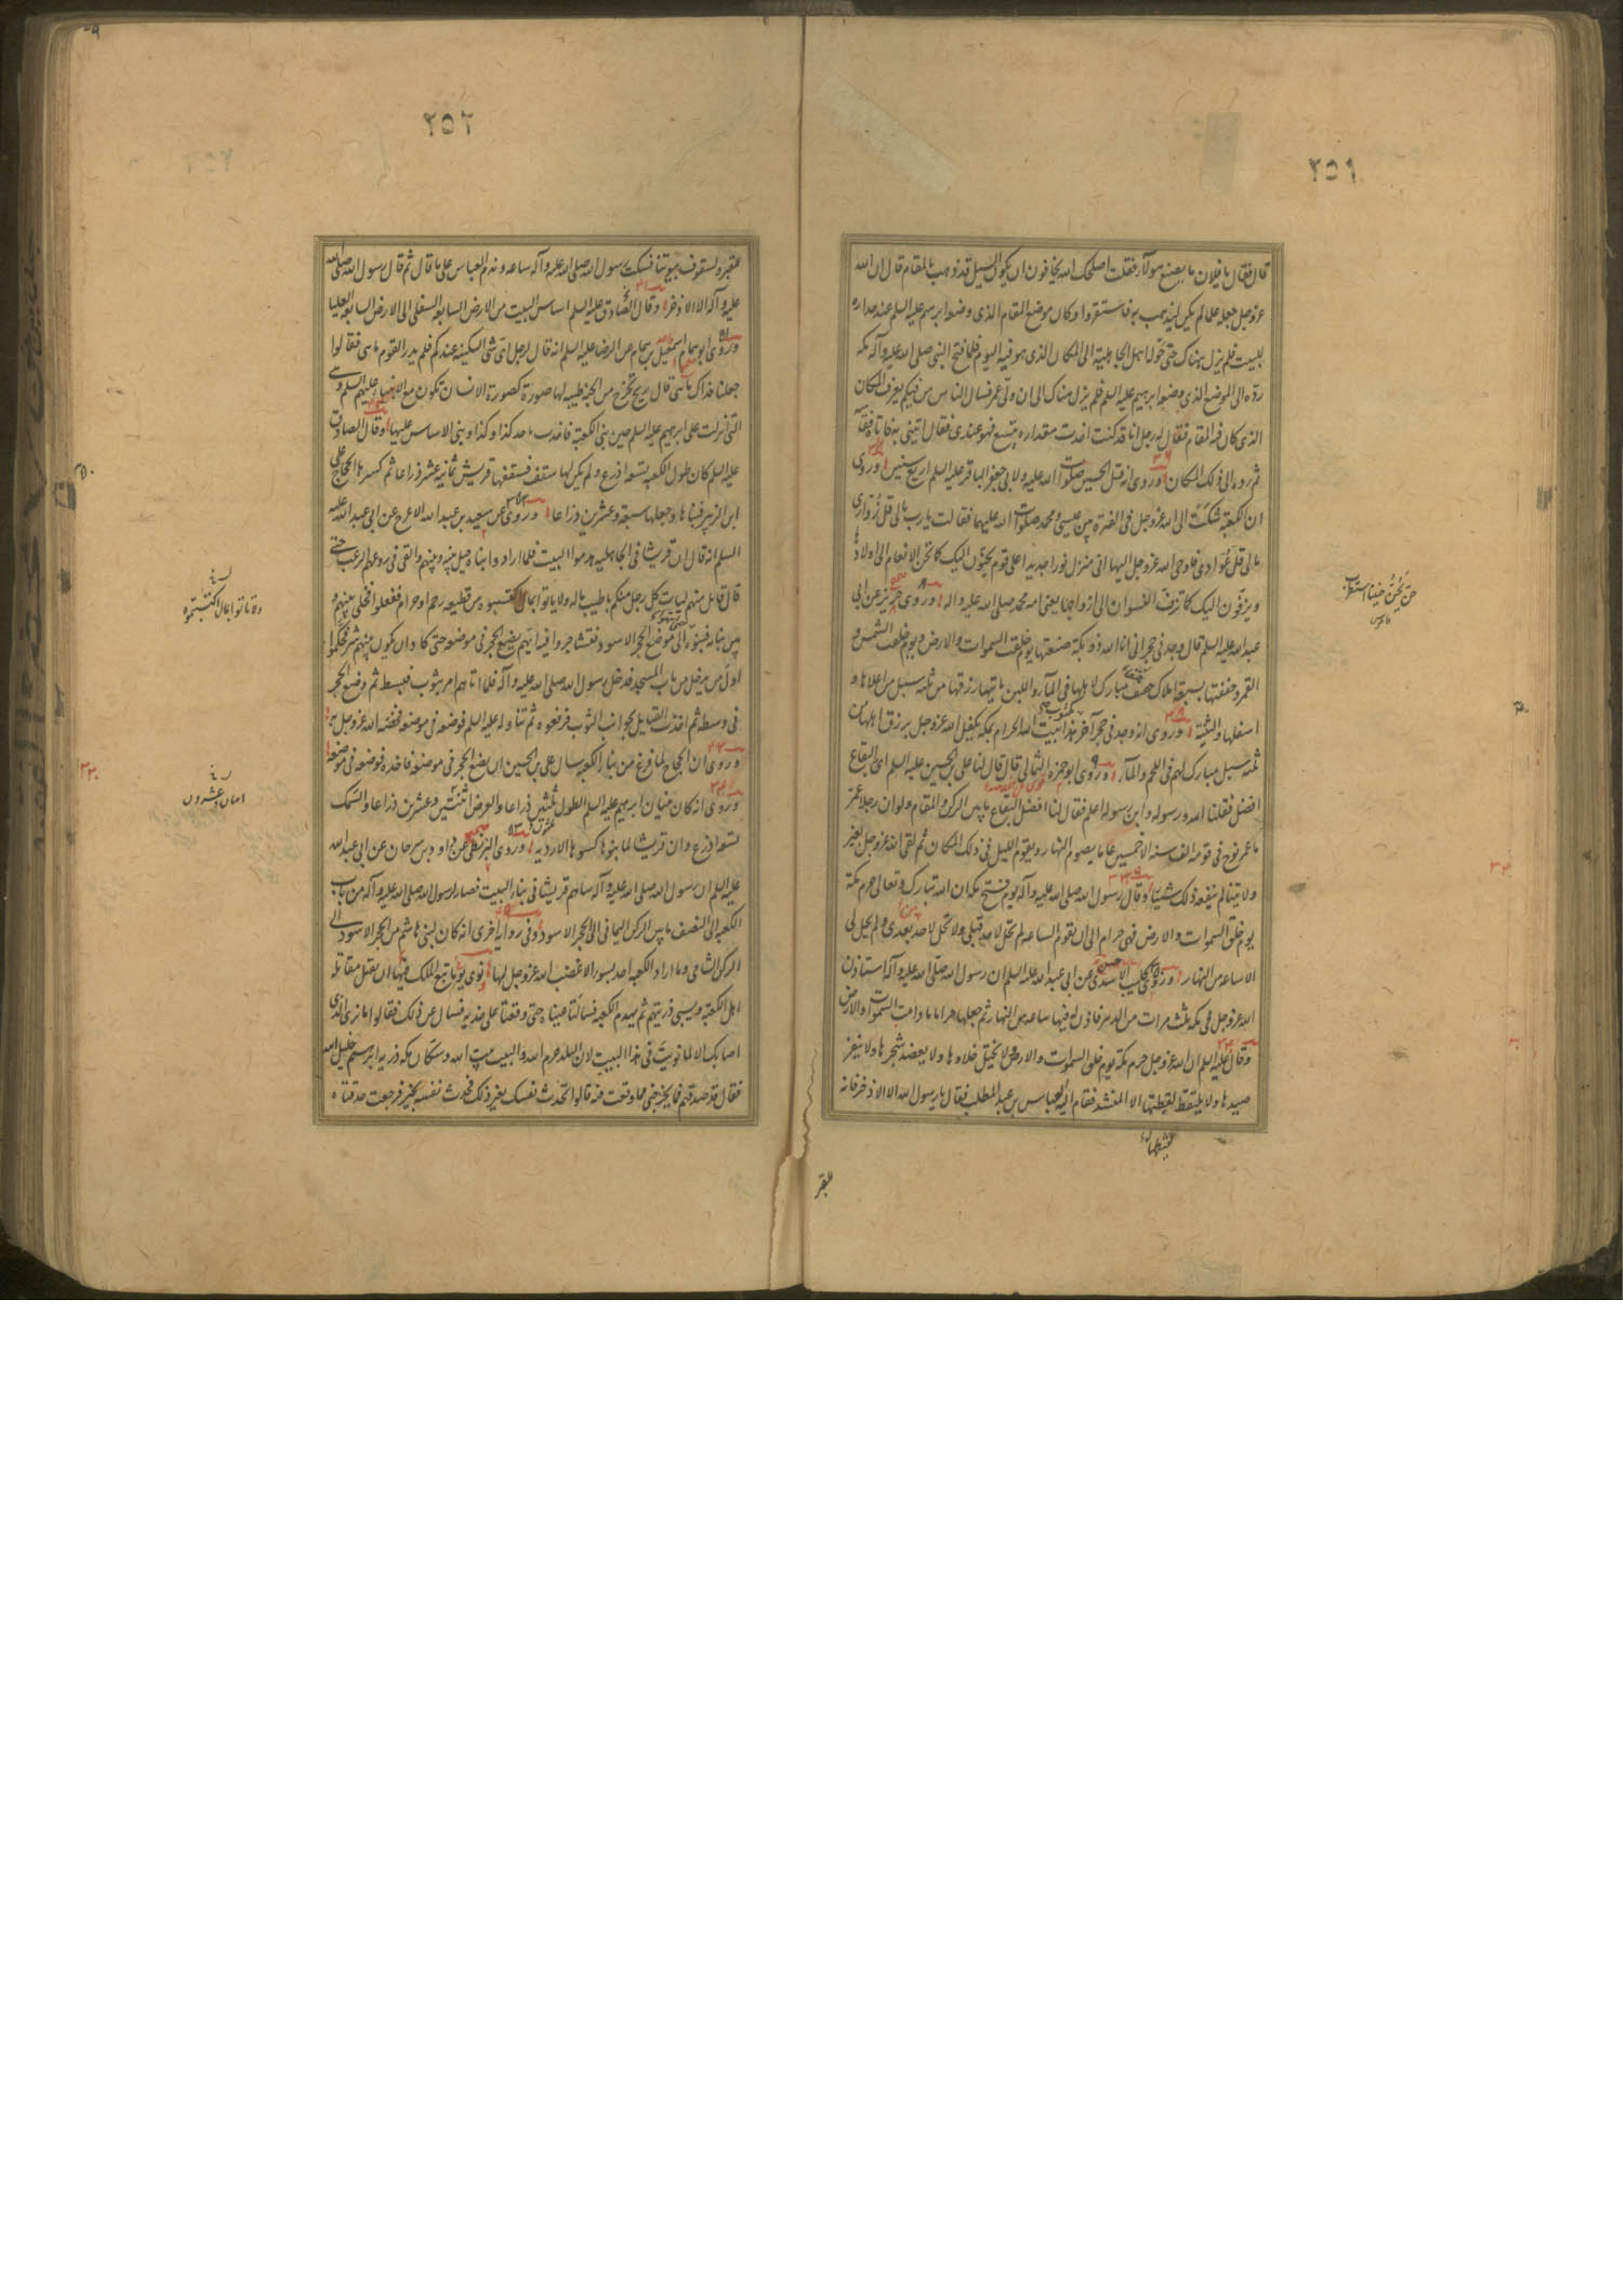 ٢٥١
قال فقال يا فلان ما يصنع هؤلاء فقلت اصلحك الله يخافون ان يكون السيل قد ذهب بالمقام قال ان الله
عز وجل جعله علما لم يكن ليذهب به فاستقروا وكان موضع المقام الذى وضعه ابرهيم عليه السلم عند جدار
البيت فلم يزل هناك حتى حوله اهل الجاهلية الى المكان الذى هو فيه اليوم فلما فتح النبى صلى الله عليه وآله مكة
رده الى الموضع الذى وضعه ابرهيم عليه السلم فلم يزل هناك الى ان ولى عمر فسال الناس من فيكم يعرف المكان
الذى كان فيه المقام فقال له رجل انا قد كنت اخذت مقداره بنسع فهو عندى فقال ايتنى به فاتاه فقاسه
ثم رده الى ذلك المكان وروى انه قتل الحسين صلوات الله عليه ولابى جعفر الباقر عليه السلم اربع سنين وروى
ان الكعبة شكت الى الله عز وجل فى الفترة بين عيسى ومحمد صلوات الله عليهما فقالت يا رب مالى قل زوارى
مالى قل عوادى فاوحى الله عز وجل اليها انى منزل نورا جديدا على قوم يحنون اليك كما تحن الانعام الى اولادها
ويزفون اليك كما تزف النسوان الى ازواجها يعنى امة محمد صلى الله عليه واله وروى حريز عن ابى
عبد الله عليه السلم قال وجد فى حجر انى انا الله ذو بكة صنعتها يوم خلقت السموات والارض ويوم خلقت الشمس و
القمر وحففتها بسبعة املاك حفا مبارك لاهلها فى الماء واللبن ياتيها رزقها من ثلثة سبل من اعلاها و
اسفلها والثنية وروى انه وجد فى حجر آخر هذا بيت الله الحرام بمكة تكفل الله عز وجل برزق اهله من
ثلثة سبل مبارك لهم فى اللحم والماء وروى ابو حمزة الثمالى قال قال لنا على بن الحسين عليه السلم اى البقاع
افضل فقلنا الله ورسوله وابن رسوله اعلم فقال لنا افضل البقاع ما بين الركن والمقام ولو ان رجلا عمر
ما عمر نوح فى قومه الف سنة الا خمسين عاما يصوم النهار ويقوم الليل فى ذلك المكان ثم لقى الله عز وجل بغير
ولايتنا لم ينفعه ذلك شيئا وقال رسول الله صلى الله عليه وآله يوم فتح مكة ان الله تبارك وتعالى حرم مكة
يوم خلق السموات والارض فهى حرام الى ان تقوم الساعة لم تحل لاحد قبلى ولا تحل لاحد بعدى ولم تحل لى
الا ساعة من النهار وروى كليب الاسدى عن ابى عبد الله عليه السلم ان رسول الله صلى الله عليه وآله استاذن
الله عز وجل فى مكة ثلث مرات من الدهر فاذن له فيها ساعة من النهار ثم جعلها حراما ما دامت السموات والارض
وقال عليه السلم ان الله عز وجل حرم مكة يوم خلق السموات والارض ولا يختلى خلاها ولا يعضد شجرها ولا ينفر
صيدها ولا يلتقط لقطتها الا المنشد فقام اليه العباس بن عبد المطلب فقال يا رسول الله الا الاذخر فانه
للقبر
٢٥٢
للقبر ولسقوف بيوتنا فسكت رسول الله صلى الله عليه وآله ساعة وندم العباس على ما قال ثم قال رسول الله صلى الله
عليه وآله الا الاذخر وقال الصادق عليه السلم اساس البيت من الارض السابعة السفلى الى الارض السابعة العليا
وروى ابو همام اسمعيل بن همام عن الرضا عليه السلم انه قال لرجل اى شى السكينة عندكم فلم يدر القوم ما هى فقالوا
جعلنا فداك ما هى قال ريح تخرج من الجنة طيبة لها صورة كصورة الانسان تكون مع الانبياء عليهم السلم وهى
التى انزلت على ابرهيم عليه السلم حين بنى الكعبة فاخذت تاخذ كذا وكذا وبنى الاساس عليها وقال الصادق
عليه السلم كان طول الكعبة تسعة اذرع ولم يكن لها سقف فسقفها قريش ثمانية عشر ذراعا ثم كسرها الحجاج على
ابن الزبير فبناها وجعلها سبعة وعشرين ذراعا وروى عن سعيد بن عبد الله الاعرج عن ابى عبد الله عليه
السلم انه قال ان قريشا فى الجاهلية هدموا البيت فلما ارادوا بناه حيل بينه وبينهم والقى فى روعهم الرعب حتى
قال قائل منهم ليات كل رجل منكم باطيب ماله ولا ياتوا بمال اكتسبوه من قطيعة رحم او حرام ففعلوا فخلى بينهم و
بين بنائه فبنوه حتى انتهوا الى موضع الحجر الاسود فتشاجروا فيه ايهم يضع الحجر فى موضعه حتى كاد ان يكون بينهم شر فحكموا
اول من يدخل من باب المسجد فدخل رسول الله صلى الله عليه وآله فلما اتاهم امر بثوب فبسط ثم وضع الحجر
فى وسطه ثم اخذت القبايل بجوانب الثوب فرفعوه ثم تناوله عليه السلم فوضعه فى موضعه فخصه الله عز وجل به
وروى ان الحجاج لما فرغ من بناء الكعبة سال على بن الحسين ان يضع الحجر فى موضعه فاخذه فوضعه فى موضعه
وروى انه كان بنيان ابرهيم عليه السلم الطول ثلثين ذراعا والعرض اثنين وعشرين ذراعا والسمك
تسعة اذرع وان قريشا لما بنوها كسوها الاردية وروى البزنطى عن داود بن سرحان عن ابى عبد الله
عليه السلم ان رسول الله صلى الله عليه وآله ساهم قريشا فى بناء البيت فصار لرسول الله صلى الله عليه وآله من باب
الكعبة الى النصف ما بين الركن اليمانى الى الحجر الاسود وفى رواية اخرى انه كان لبنى هاشم من الحجر الاسود الى
الركن الشامى وما اراد الكعبة احد بسوء الا غضب الله عز وجل لها ونوى يوما تبع الملك ان يقتل مقاتلة
اهل الكعبة ويسبى ذريتهم ثم يهدم الكعبة فسالتا عيناه حتى وقعتا على خديه فسال عن ذلك فقالوا ما نرى الذى
اصابك الا لما نويت فى هذا البيت لان البلد حرم الله والبيت بيت الله وسكان مكة ذرية ابرهيم خليل الله
فقال قد صدقتم فما يخرجنى مما وقعت فيه قالوا تحدث نفسك بغير ذلك فحدث نفسه بخير فرجعت حدقتاه